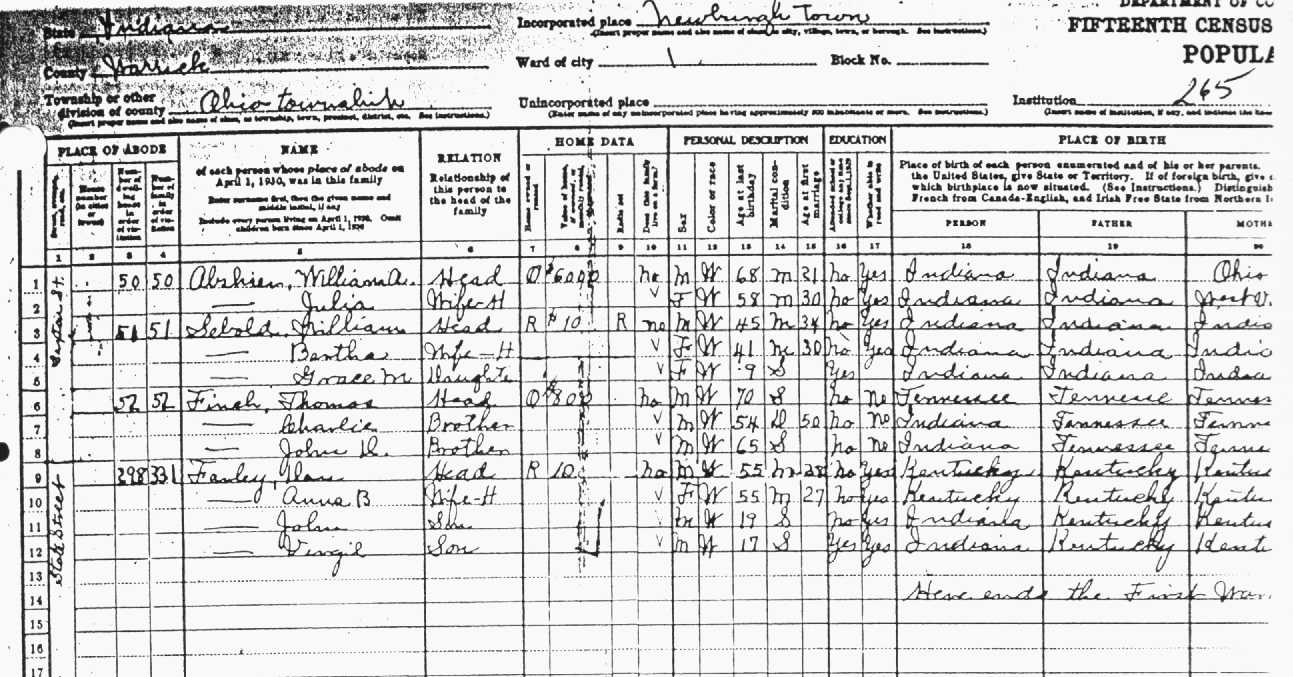 DEPARTMENT OF CO
State Indiana Incorporated place Newburgh Town FIFTEENTH CENSUS
(Insert proper name and also name of class, as city, village, town, or borough. See instructions.)
County Warrick Ward of city 1. Block No. POPULA
Township or other division of county Ohio township Unincorporated place Institution 265
(Insert proper name and also name of class, as township, town, precinct, district, etc. See instructions.) (Enter name of any unincorporated place having approximately 500 inhabitants or more. See instructions.) (Insert name of institution, if any, and indicate the
PLACE OF ABODE NAME RELATION HOME DATA PERSONAL DESCRIPTION EDUCATION PLACE OF BIRTH
of each person whose place of abode on April 1, 1930, was in this family
Enter surname first, then the given name and middle initial, if any
Include every person living on April 1, 1930. Omit children born since April 1, 1930
Relationship of this person to the head of the family
Place of birth of each person enumerated and of his or her parents.
the United States, give State or Territory. If of foreign birth, give
which birthplace is now situated. (See Instructions.) Distinguish
French from Canada-English, and Irish Free State from Northern I
Street, avenue, road, etc. House number (in cities or towns) Number of dwelling house in order of visitation Number of family in order of visitation Home owned or rented Radio set Does this family live on a farm? Sex Color or race Age at last birthday Marital condition Age at first marriage Whether able to read and write PERSON FATHER MOTH
1 2 3 4 5 6 7 8 9 10 11 12 13 14 15 16 17 18 19 20
1 50 50 William A. Head O $6000 no M W 68 M 31 no Yes Indiana Indiana Ohio
2 — Julia Wife-H V F W 58 M 30 no Yes Indiana Indiana West V.
3 51 51 Sebold, William Head R $10 R no M W 45 M 34 no Yes Indiana Indiana India
4 — Bertha Wife-H V F W 41 M 30 no Yes Indiana Indiana India
5 — Grace M Daughte V F W 9 S Yes Indiana Indiana India
6 52 52 Finch, Thomas Head O $800 no M W 70 S no No Tennessee Tennessee Tennes
7 — Charlie Brother V M W 54 D 50 no No Indiana Tennessee Tenne
8 — John D. Brother V M W 65 S no No Indiana Tennessee Tenne
9 298 331 Head R 10 no M W 55 M 28 no Yes Kentucky Kentucky Kentuc
10 — Anna B Wife-H V F W 55 M 27 no yes Kentucky Kentucky Kentu
11 — John Son V M W 19 S no yes Indiana Kentucky Kentuc
12 — Virgil Son V M W 17 S Yes Yes Indiana Kentucky Kente
State Street
13
14 Here ends the First War
15
16
17